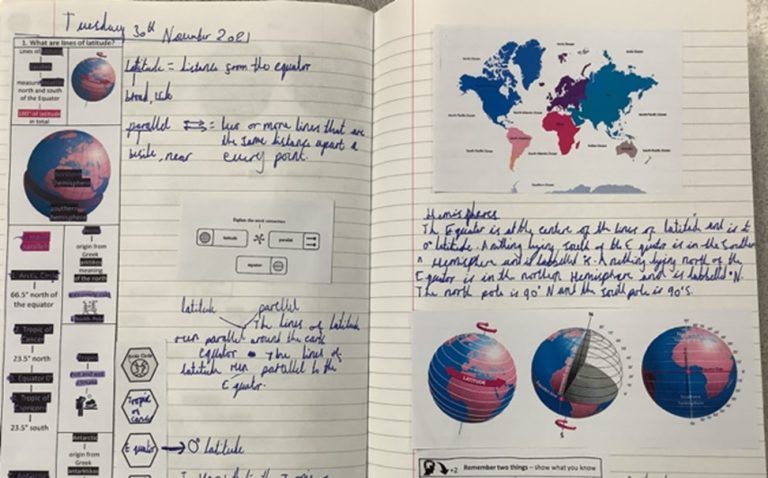 Tuesday 30th November 2021
1. What are lines of latitude?
Lines of
measure
north and south
of the Equator
180° of latitude
in total
northern
hemisphere
southern
hemisphere
Arctic Circle
66.5° north of
the equator
2. Tropic of
Cancer
23.5° north
Equator 0°
Tropic of
Capricorn
23.5° south
origin from
Greek
meaning
of the north
Tropic
Antarctic
origin from
Greek
antarktikos
Latitude = distance from the equator
broad, wide
parallel = two or more lines that are
the same distance apart a
beside, near every point.
Explain the word connections
latitude
parallel
equator
latitude parallel
The lines of latitude
run parallel around the
equator The lines of
latitude run parallel to the
Equator.
Arctic Circle
Tropic
of
Equator
0° latitude
North Pacific Ocean
North Atlantic Ocean
South Pacific Ocean
South Atlantic Ocean
Indian Ocean
Southern Ocean
Hemispheres
The Equator is at the centre of the lines of latitude and is
0° latitude. Anything lying South of the Equator is in the Southern
Hemisphere and is labelled °S. Anything lying north of the
Equator is in the northern Hemisphere and is labelled °N.
The north pole is 90° N and the South pole is 90°S.
LATITUDE
N
S
+2
Remember two things – show what you know